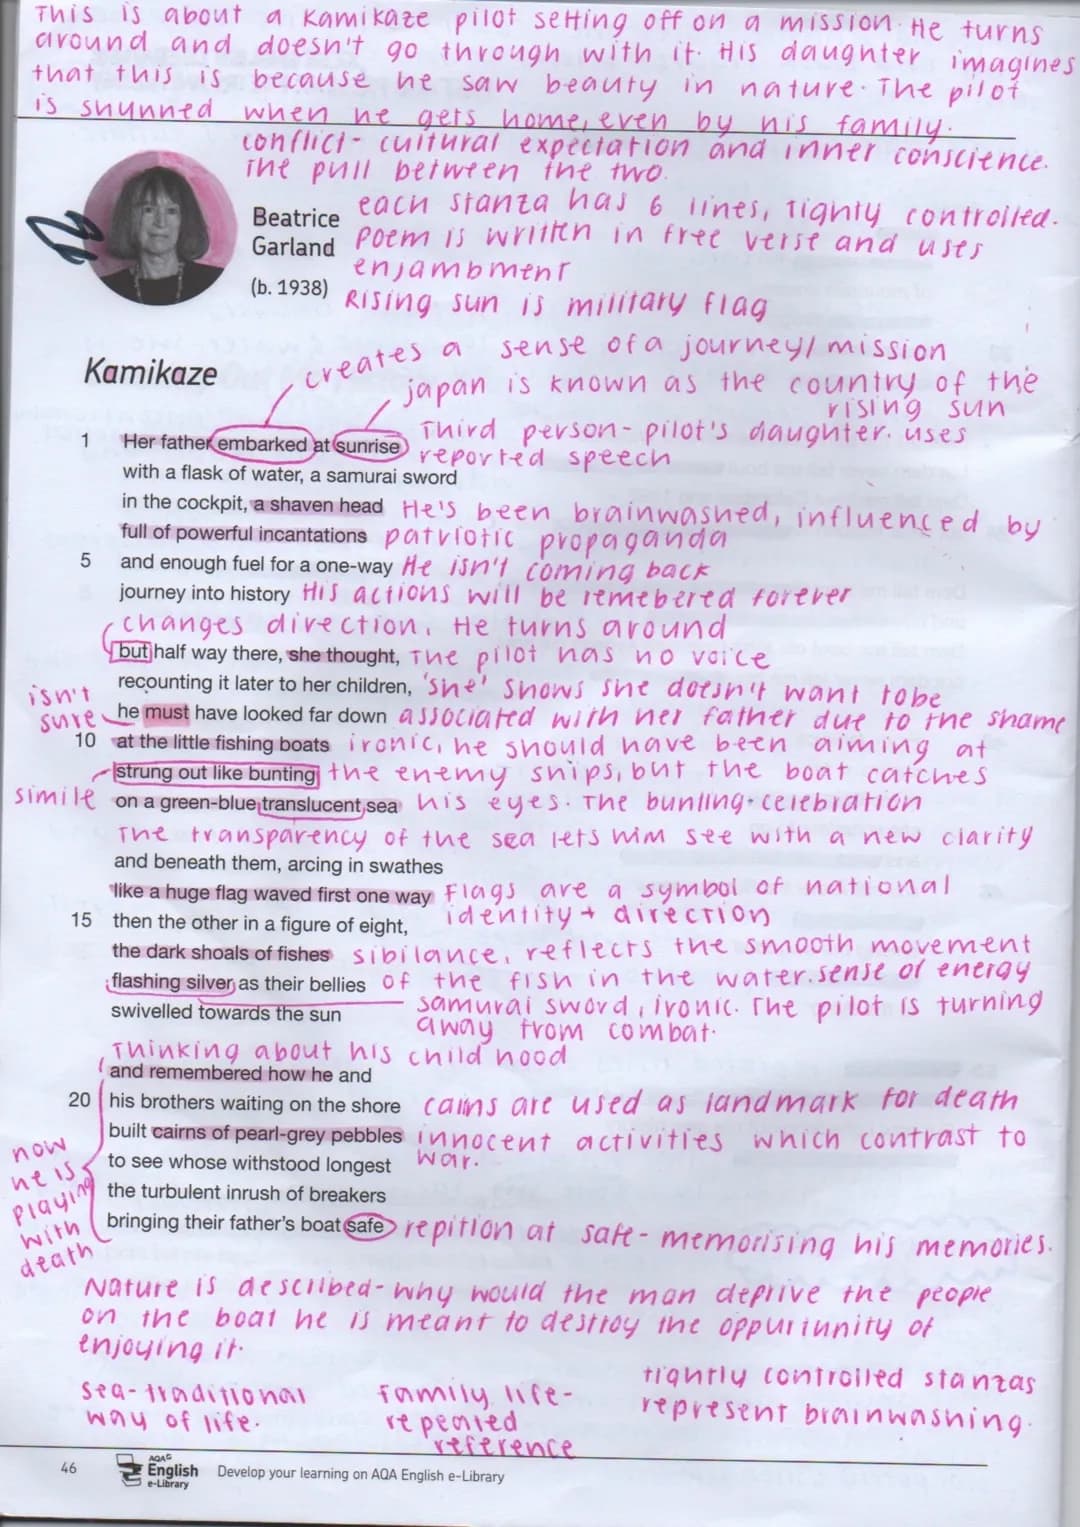 This is about a Kamikaze pilot setting off on a mission. He turns
around and doesn't go through with it. His daughter imagines
that this is because he saw beauty in nature. The pilot
is shunned when he gets home, even by his family.
conflict- cultural expectation and inner conscience.
The pull between the two.
each stanza has 6 lines, tightly controlled.
Beatrice
Garland
poem is written in free verse and uses
enjambment
(b. 1938)
Rising sun is military flag
creates a sense of a journey/mission
Kamikaze
japan is known as the country of the
rising sun
1 Her father embarked at sunrise
Third person- pilot's daughter. uses
reported speech
with a flask of water, a samurai sword
in the cockpit, a shaven head He's been brainwashed, influenced by
full of powerful incantations patriotic propaganda
5 and enough fuel for a one-way He isn't coming back
journey into history His actions will be remebered forever
changes direction. He turns around
but half way there, she thought, The pilot has no voice
recounting it later to her children, 'she' shows she doesn't want to be
isn't
sure
he must have looked far down associated with her father due to the shame
10 at the little fishing boats ironic, he should have been aiming at
strung out like bunting the enemy ships, but the boat catches
simile on a green-blue translucent sea his eyes. The bunting- celebration
The transparency of the sea lets him see with a new clarity
and beneath them, arcing in swathes
like a huge flag waved first one way Flags are a symbol of national
15 then the other in a figure of eight, identity + direction
the dark shoals of fishes sibilance, reflects the smooth movement
flashing silver as their bellies of the fish in the water. sense of energy
swivelled towards the sun samurai sword, ironic. The pilot is turning
away from combat.
Thinking about his child hood
and remembered how he and
20 his brothers waiting on the shore cairns are used as landmark for death
built cairns of pearl-grey pebbles innocent activities which contrast to
war.
to see whose withstood longest
the turbulent inrush of breakers
bringing their father's boat safe repition at safe- memorising his memories.
now
he is
playing
with
death
Nature is described- why would the man deprive the people
on the boat he is meant to destroy the oppurtunity of
enjoying it.
tightly controlled stanzas
represent brainwashing.
sea- traditional
way of life.
family life-
repeated
reference
46 AQA English e-Library Develop your learning on AQA English e-Library